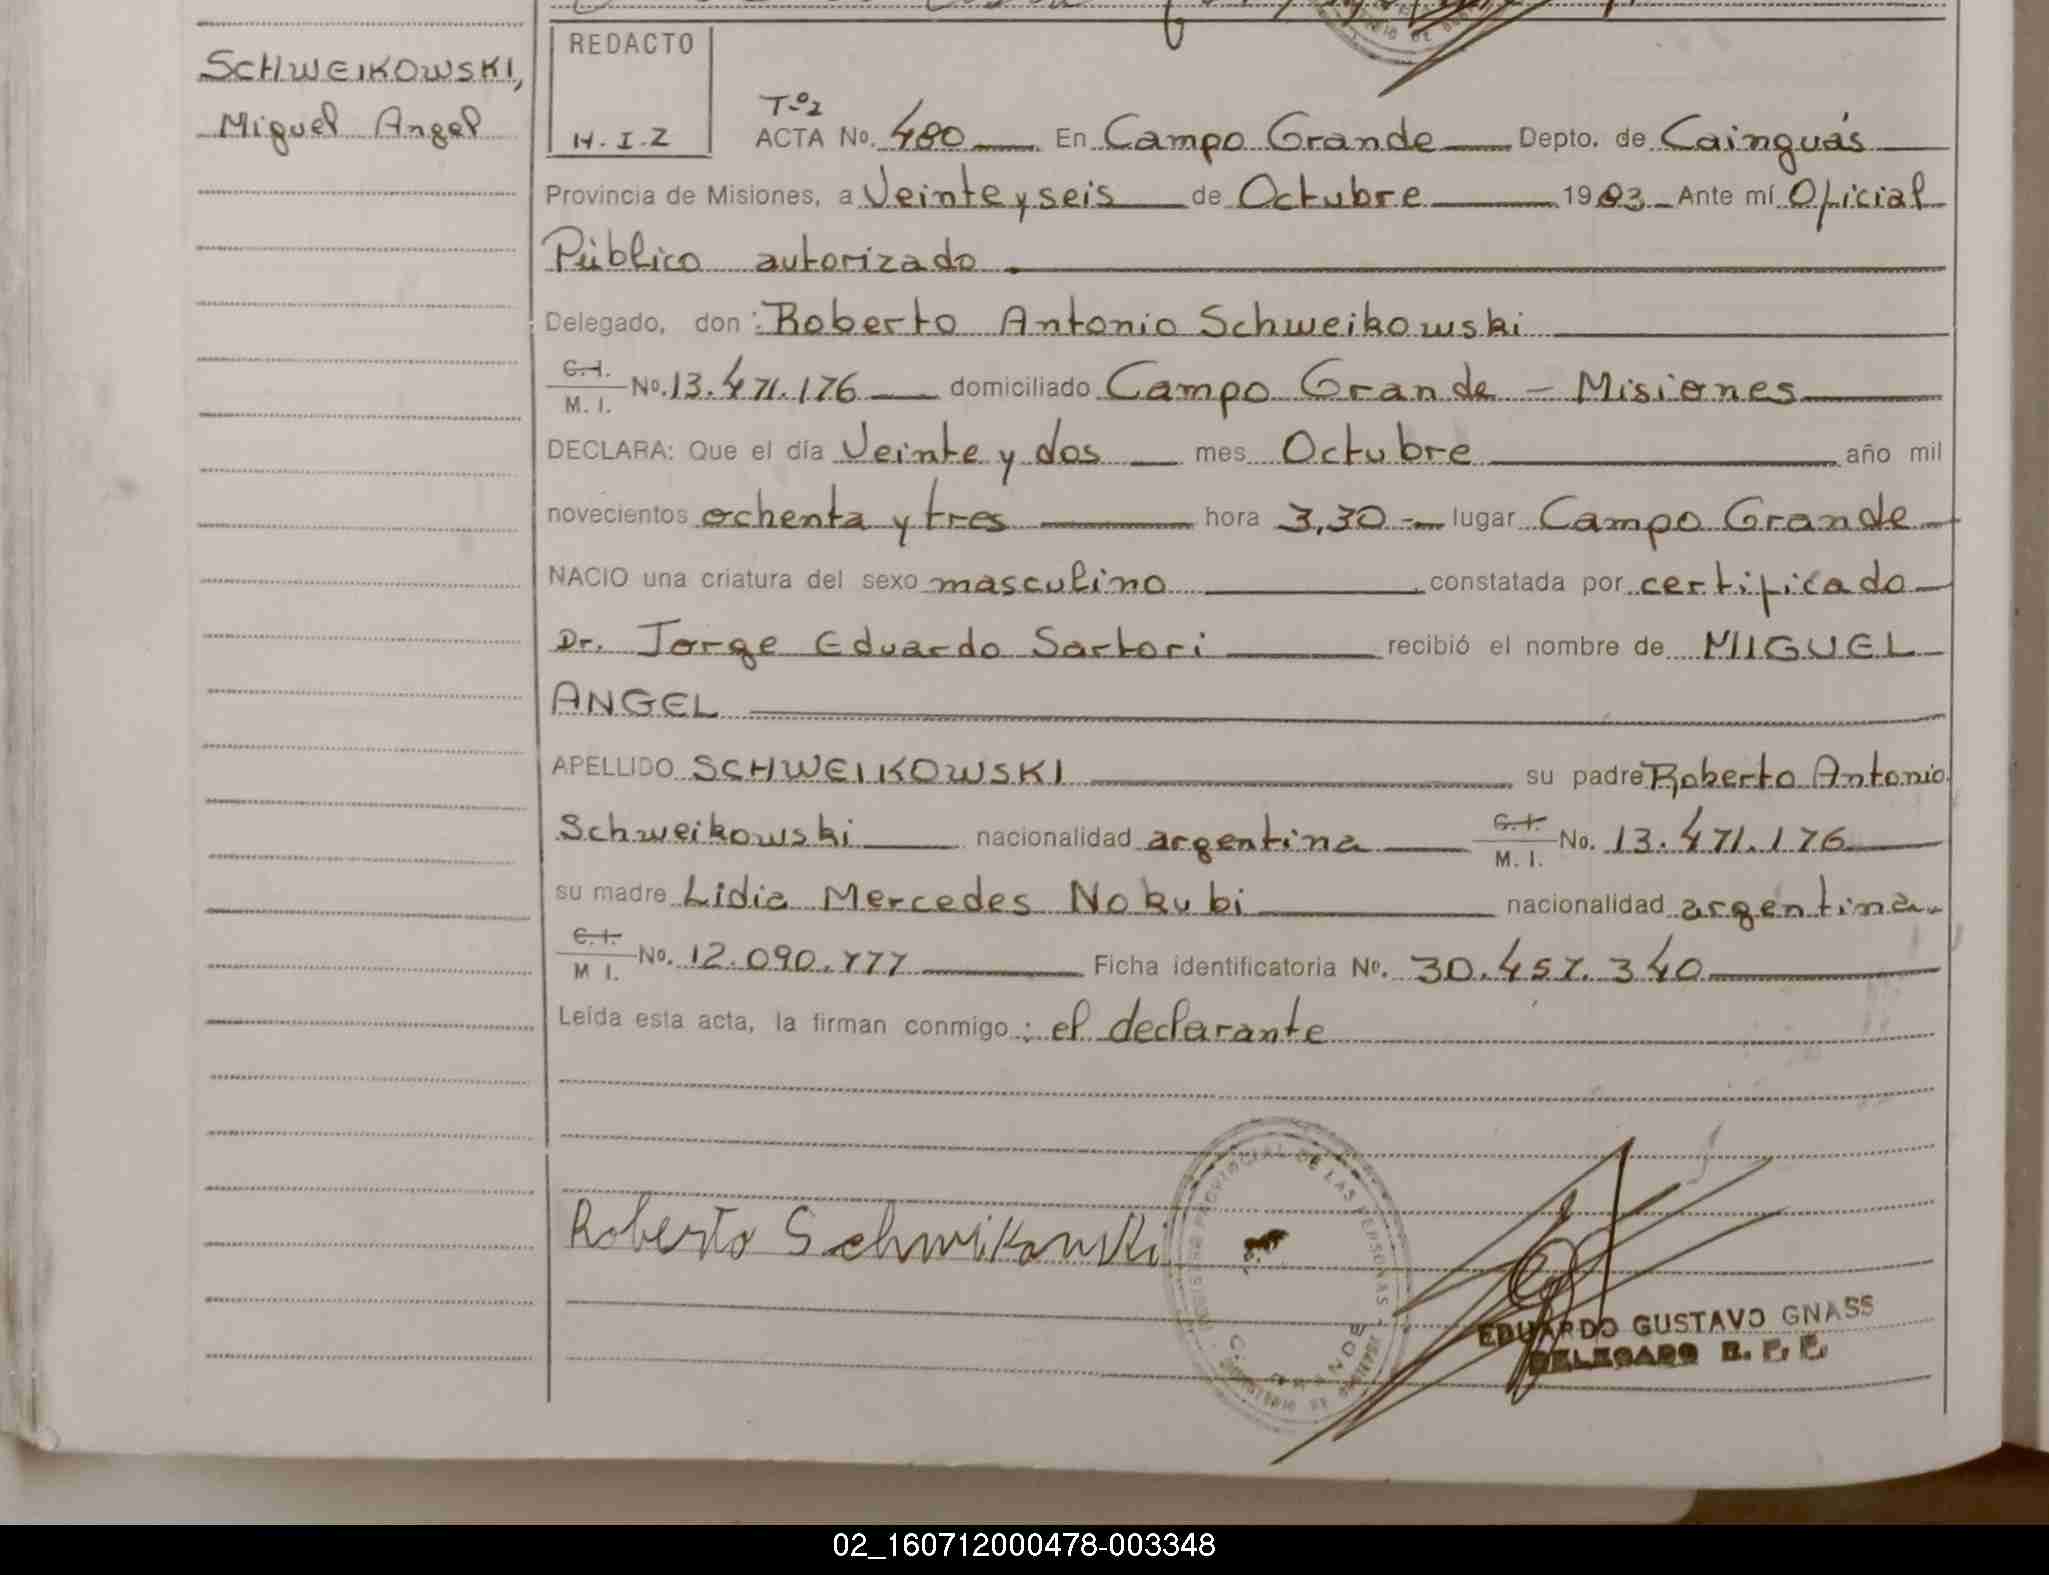 SCHWEIKOWSKI,
Miguel Angel
REDACTO
H.I.Z
T.º2
ACTA No. 480 En Campo Grande Depto. de Cainguás
Provincia de Misiones, a Veinte y seis de Octubre 1983 Ante mí Oficial
Público autorizado.
Delegado, don: Roberto Antonio Schweikowski
C.I.
M. I. No. 13.471.176 domiciliado Campo Grande - Misiones
DECLARA: Que el día Veinte y dos mes Octubre año mil
novecientos ochenta y tres hora 3,30.- lugar Campo Grande
NACIO una criatura del sexo masculino constatada por certificado
Dr. Jorge Eduardo Sartori recibió el nombre de MIGUEL
ANGEL
APELLIDO SCHWEIKOWSKI su padre Roberto Antonio
Schweikowski nacionalidad argentina C.I.
M. I. No. 13.471.176
su madre Lidia Mercedes Nokubi nacionalidad argentina
C.I.
M I. No. 12.090.777 Ficha identificatoria No. 30.457.340
Leída esta acta, la firman conmigo: el declarante
Roberto Schwikowski
PROVINCIAL DE LAS PERSONAS
EDUARDO GUSTAVO GNASS
DELEGADO
02_160712000478-003348